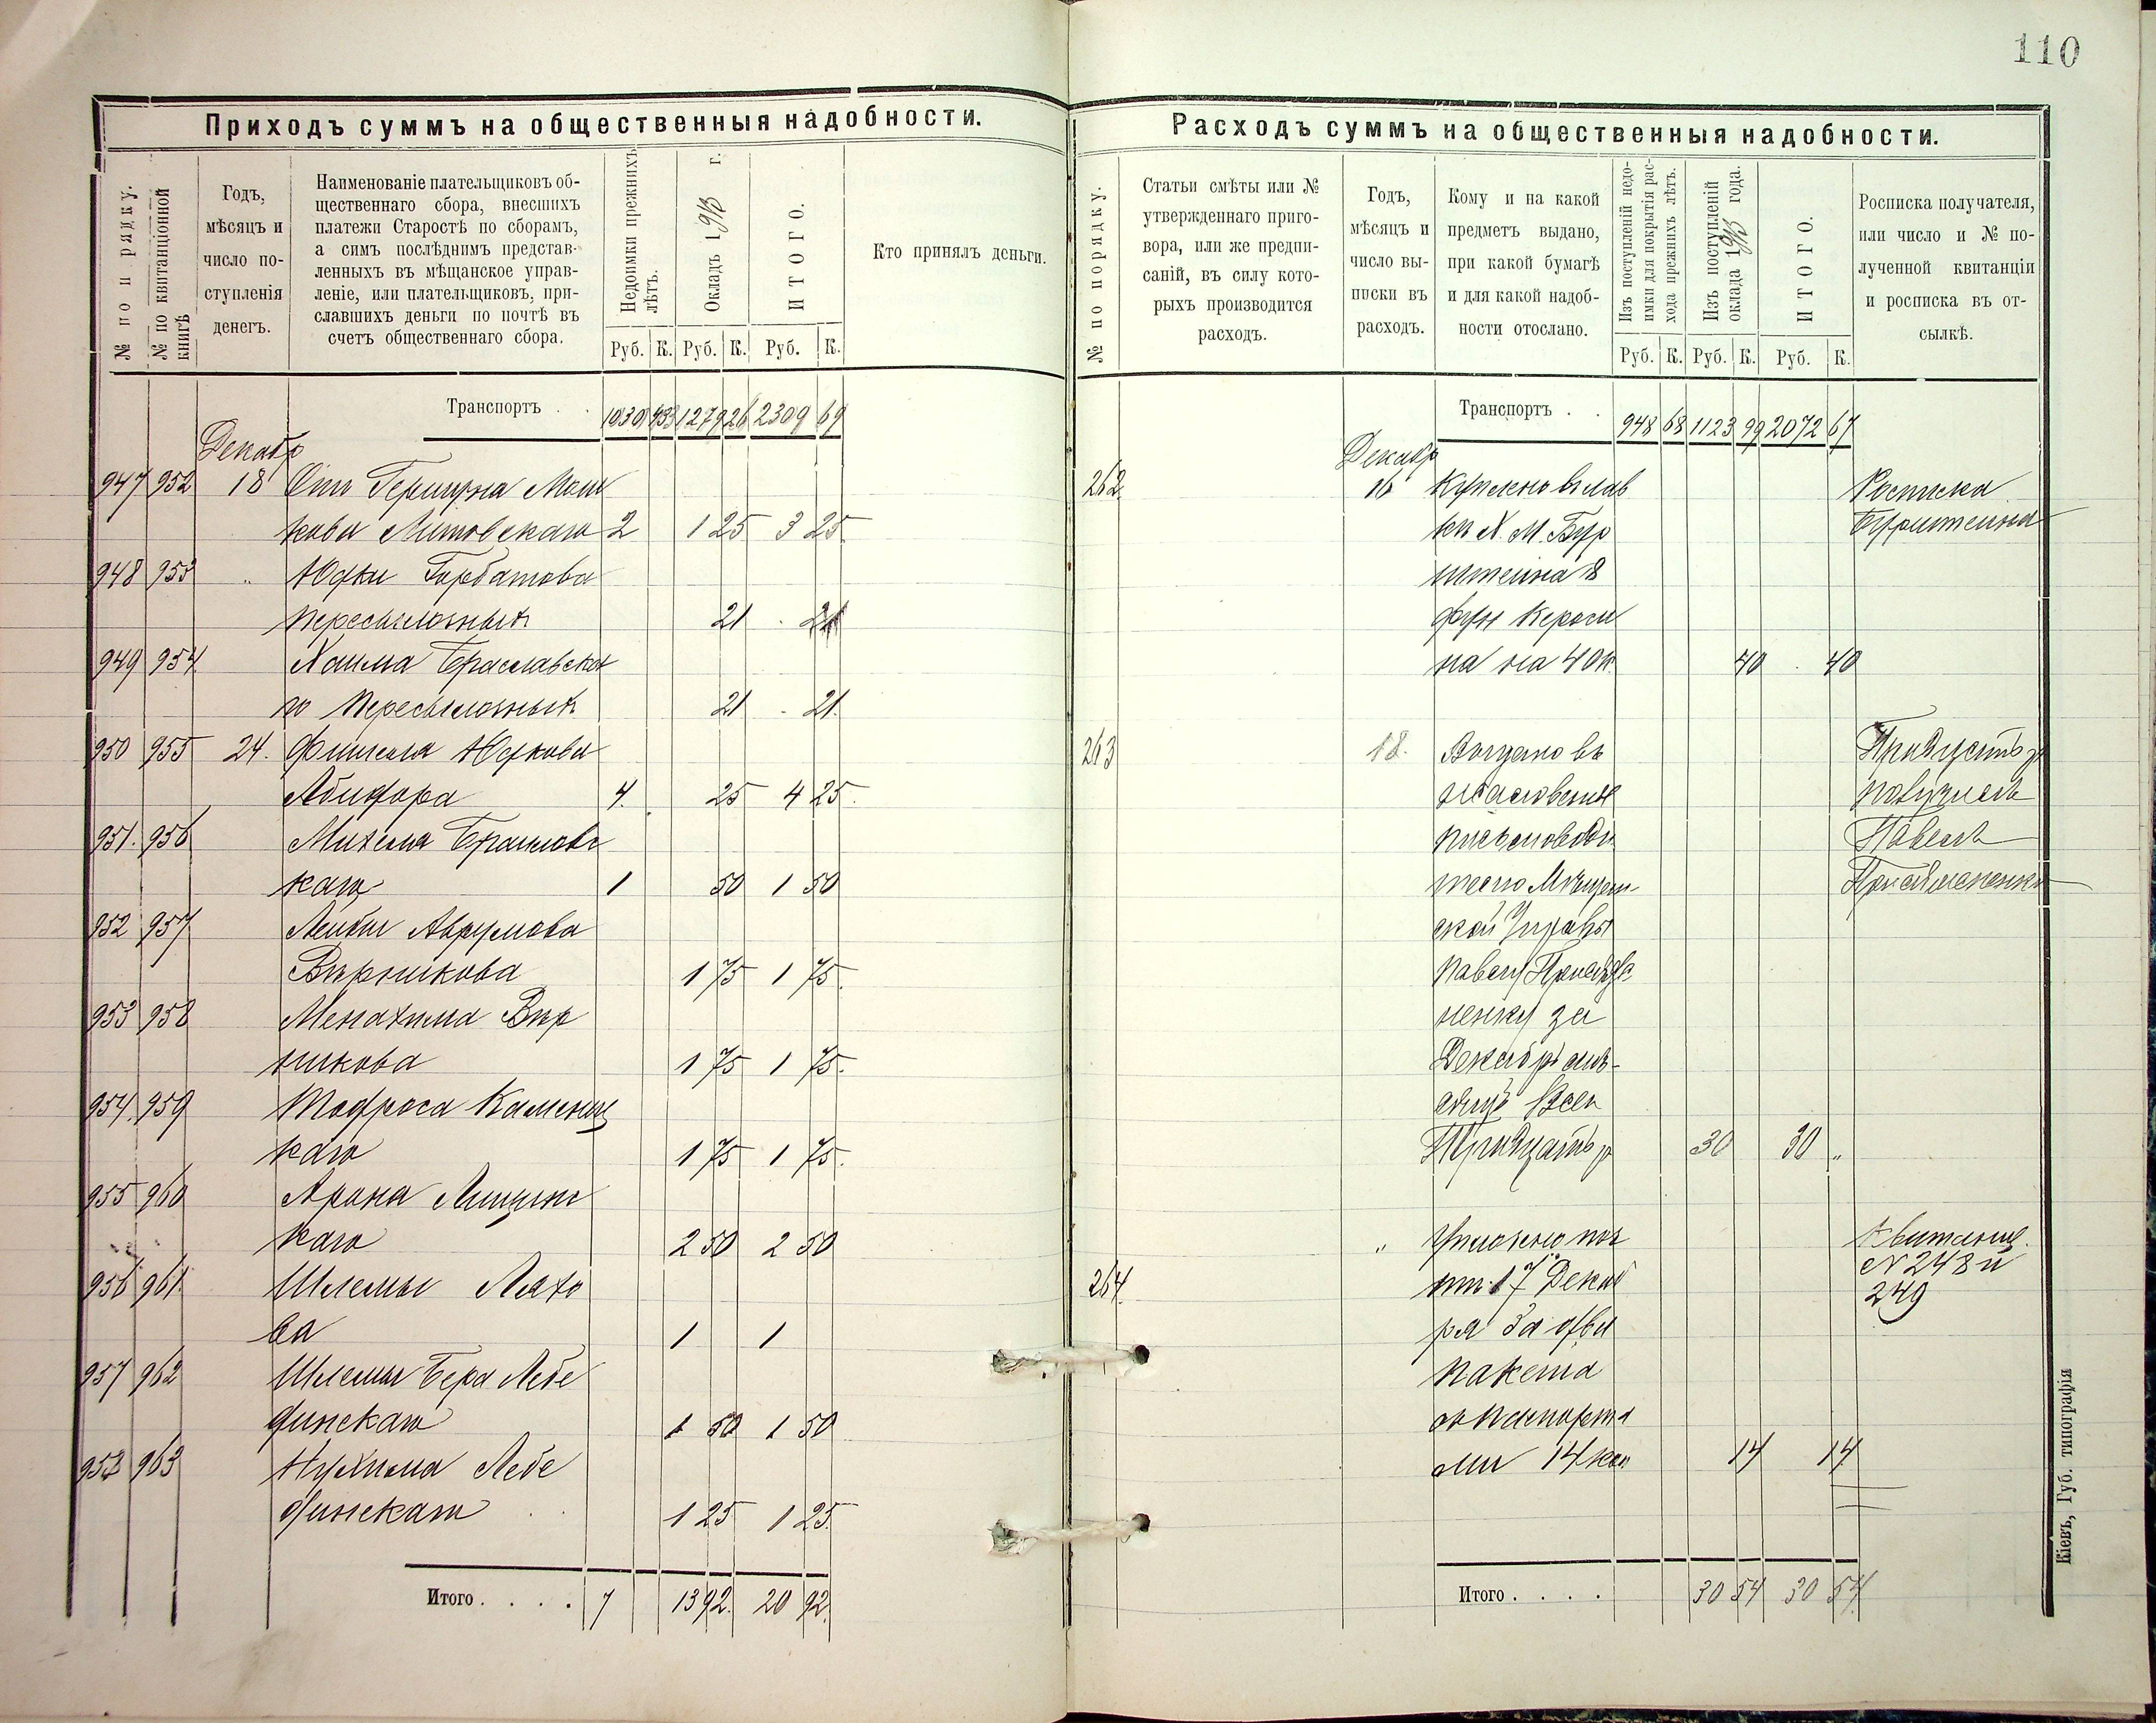 110
Приходъ суммъ на общественныя надобности.
№ по порядку.
№ по квитанціонной книгѣ
Годъ,
мѣсяцъ и
число по-
ступленія
денегъ.
Наименованіе плательщиковъ об-
щественнаго сбора, внесшихъ
платежи Старостѣ по сборамъ,
а симъ послѣднимъ представ-
ленныхъ въ мѣщанское управ-
леніе, или плательщиковъ, при-
славшихъ деньги по почтѣ въ
счетъ общественнаго сбора.
Недоимки прежнихъ лѣтъ.
Окладъ 1913 г.
ИТОГО.
Кто принялъ деньги.
Руб. К. Руб. К. Руб. К.
Транспортъ . . 1030 43 1279 26 2309 69
Декабр
947 952 18 Отъ Гершуна Мош
кова Литовскаго 2 1 25 3 25
948 953 " Юдки Горбатова
пересылочныхъ 21 . 21
949 954 Хаима Браславска
го пересылочныхъ 21 . 21.
950 955 24. Фишеля Юдкова
Абидора 4. 25 4 25.
951. 956 Михеля Браиловс
каго 1 50 1 50
952 957 Лейбы Аврумова
Вѣрникова 1 75 1 75.
953 958 Менахима Вѣр
никова 1 75 1 75.
954. 959 Тодроса Каменец
каго 1 75 1 75.
955 960 Арона Липинс
каго 2 50 2 50
956 961. Шлемы Ляхо
ва 1 1
957 962 Шлемы Бера Лебе
динскаго 1 50 1 50
958 963 Нухима Лебе
динскаго 1 25 1 25.
Итого . . . . 7 13 92. 20 92.
Расходъ суммъ на общественныя надобности.
№ по порядку.
Статьи смѣты или №
утвержденнаго приго-
вора, или же предпи-
саній, въ силу кото-
рыхъ производится
расходъ.
Годъ,
мѣсяцъ и
число вы-
писки въ
расходъ.
Кому и на какой
предметъ выдано,
при какой бумагѣ
и для какой надоб-
ности отослано.
Изъ поступленій недо-
имки для покрытія рас-
хода прежнихъ лѣтъ.
Изъ поступленій
оклада 1913 года.
ИТОГО.
Росписка получателя,
или число и № по-
лученной квитанціи
и росписка въ от-
сылкѣ.
Руб. К. Руб. К. Руб. К.
Транспортъ . . 948 68 1123 99 2072 67
Декабр
262. 16 Куплено в лав Росписка
кѣ Х. М. Бур Бурштейна
штейна 8
фун кероси
на на 40 к. 40 . 40
263 18. Выдано въ Тридцать р
жалованіе получилъ
письмоводи Павелъ
телю Мѣщан
ской Управы
Павлу
ненку за
Декабрь мѣ-
сяцъ Всего
Тридцать р 30 30 "
" Уплочено поч Квитанціи
264. тѣ 17 Декаб № 248 и
ря за два 249
пакета
съ паспорта
ми 14 коп 14 14
Итого . . . . 30 54 30 54.
Кіевъ, Губ. типографія